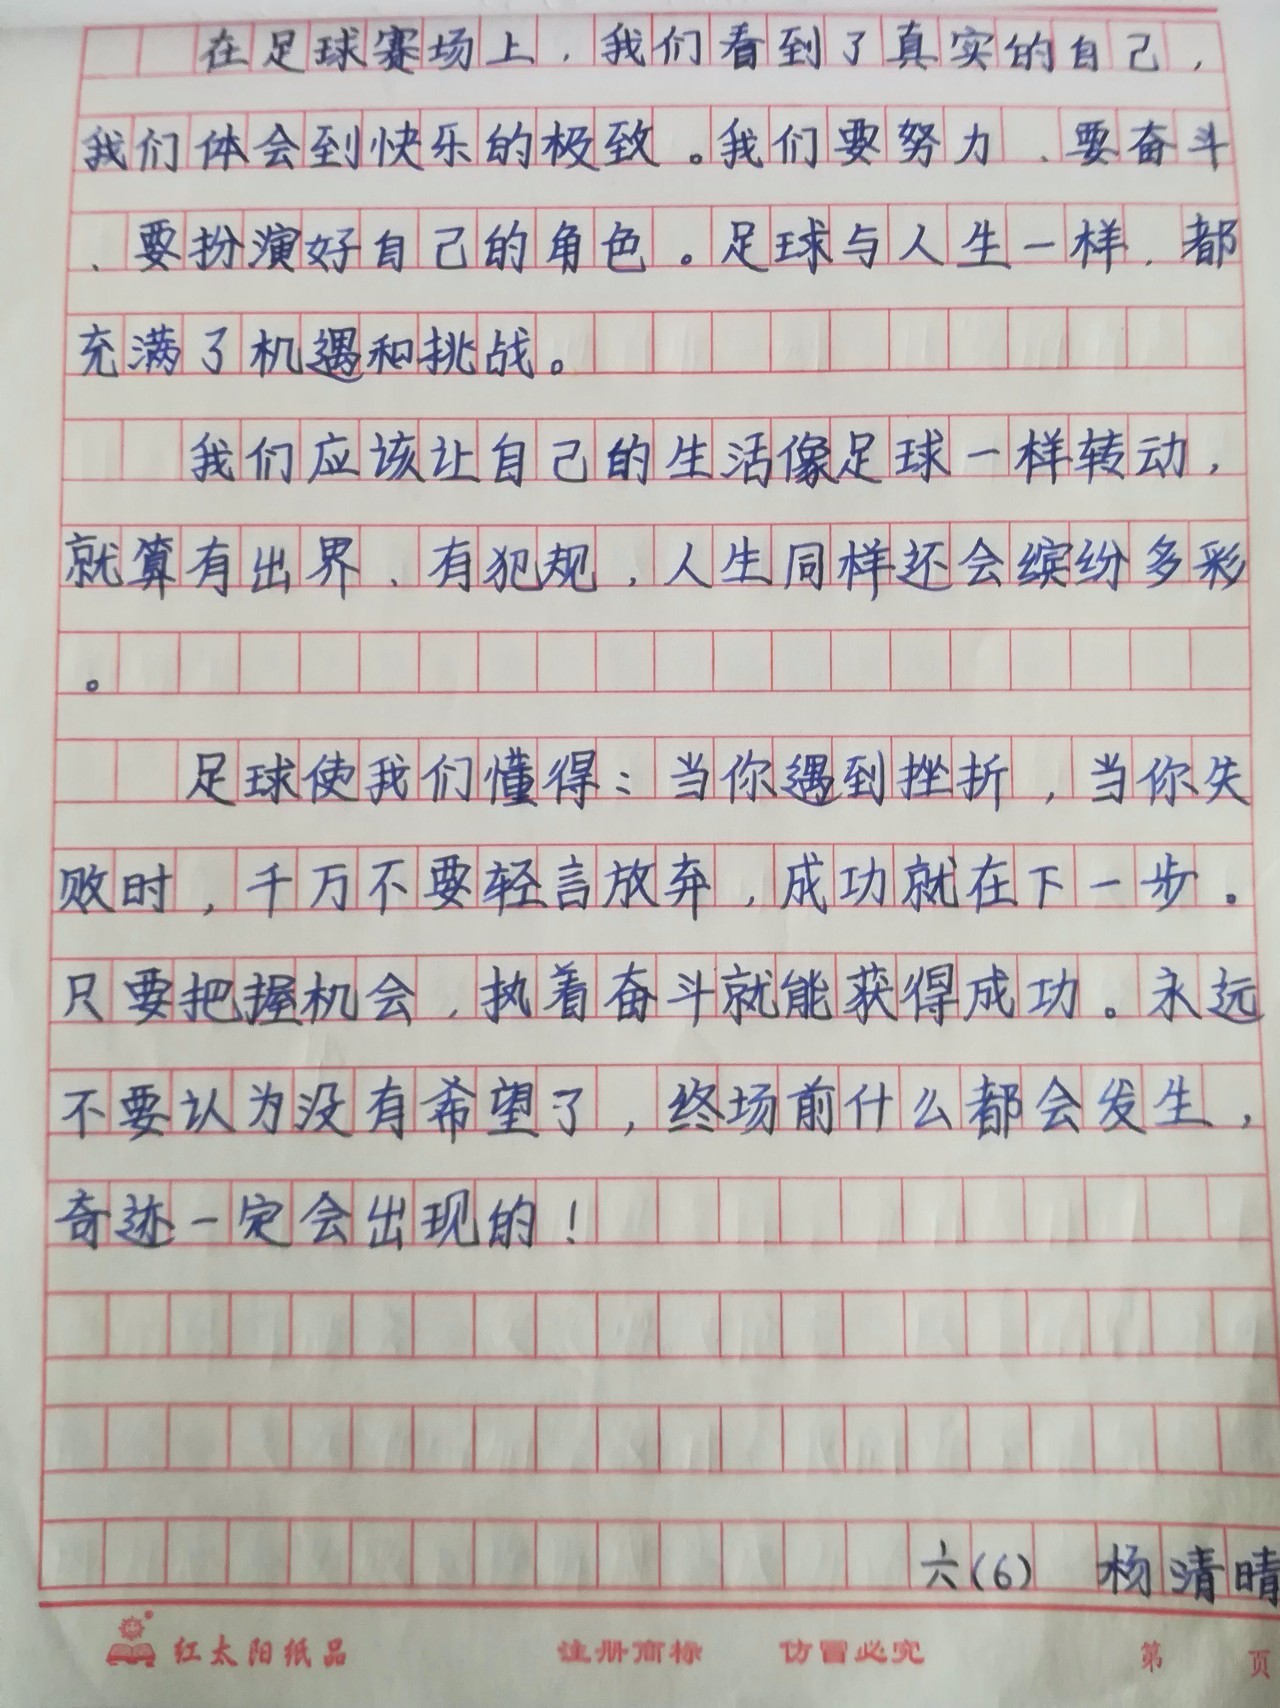 在足球赛场上，我们看到了真实的自己，
我们体会到快乐的极致。我们要努力、要奋斗
、要扮演好自己的角色。足球与人生一样，都
充满了机遇和挑战。
我们应该让自己的生活像足球一样转动，
就算有出界、有犯规，人生同样还会缤纷多彩
。
足球使我们懂得：当你遇到挫折，当你失
败时，千万不要轻言放弃，成功就在下一步。
只要把握机会，执着奋斗就能获得成功。永远
不要认为没有希望了，终场前什么都会发生，
奇迹一定会出现的！
六(6) 杨清晴
红太阳纸品 注册商标 仿冒必究 第 页